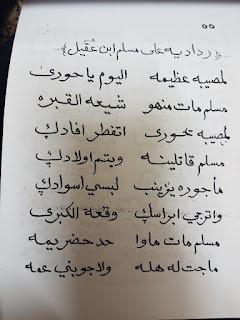 ٥٥
﴿ردادية على مسلم ابن عقيل﴾
لمصيبه عظيمه اليوم يا حورى
مسلم مات منهو شيعه القبره
لمصيبه تحورى اتفطر افادك
مسلم قاتلينه ويتم اولادك
مأجوره يزينب لبسي اسوادك
واترجي ابراسك وقعة الكبرى
مسلم مات ماوا حد حضر يمه
ما جت له هله ولا جو بني عمه